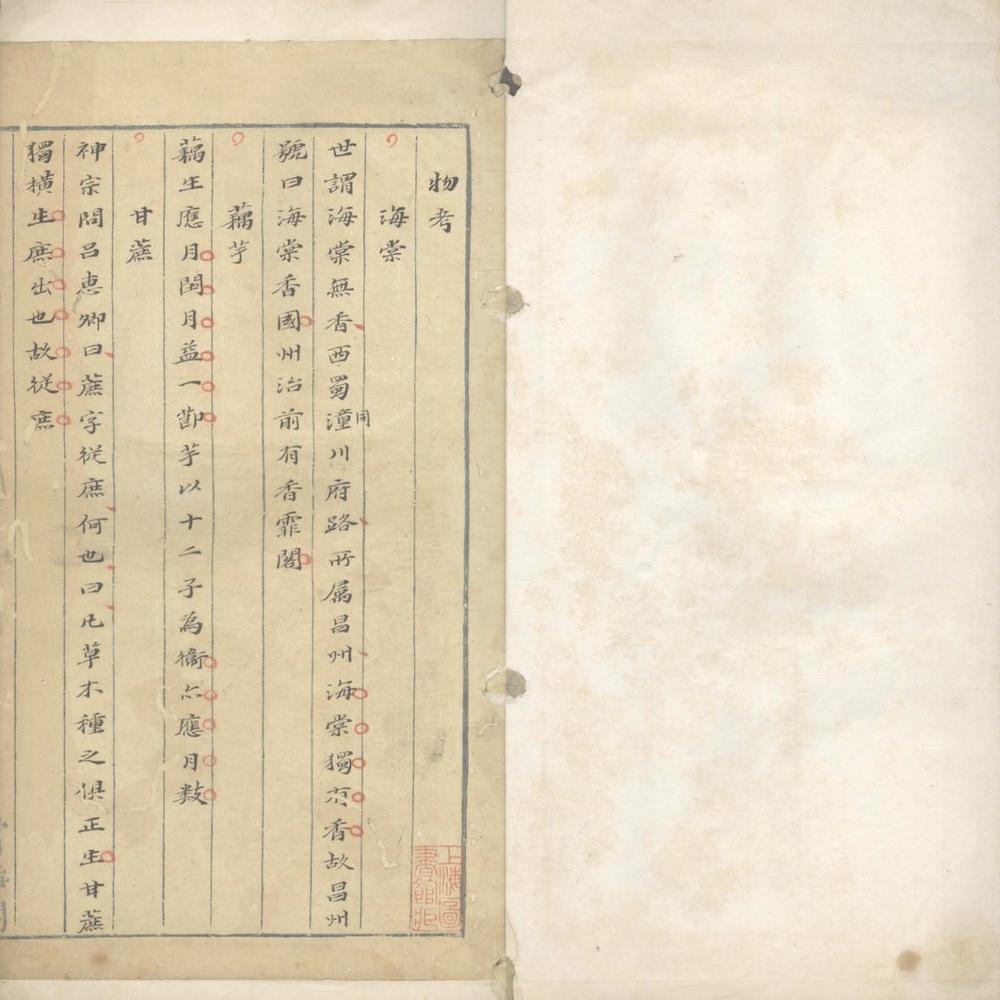 物考
海棠
世謂海棠無香西蜀潼川府路所属昌州海棠獨有香故昌州
同
號曰海棠香國州治前有香霏閣
藕芋
藕生應月閏月益一節芋以十二子為衛亦應月数
甘蔗
神宗問吕惠卿曰蔗字從庶何也曰凡草木種之俱正生甘蔗
獨橫生庶出也故從庶
上海圖書館藏